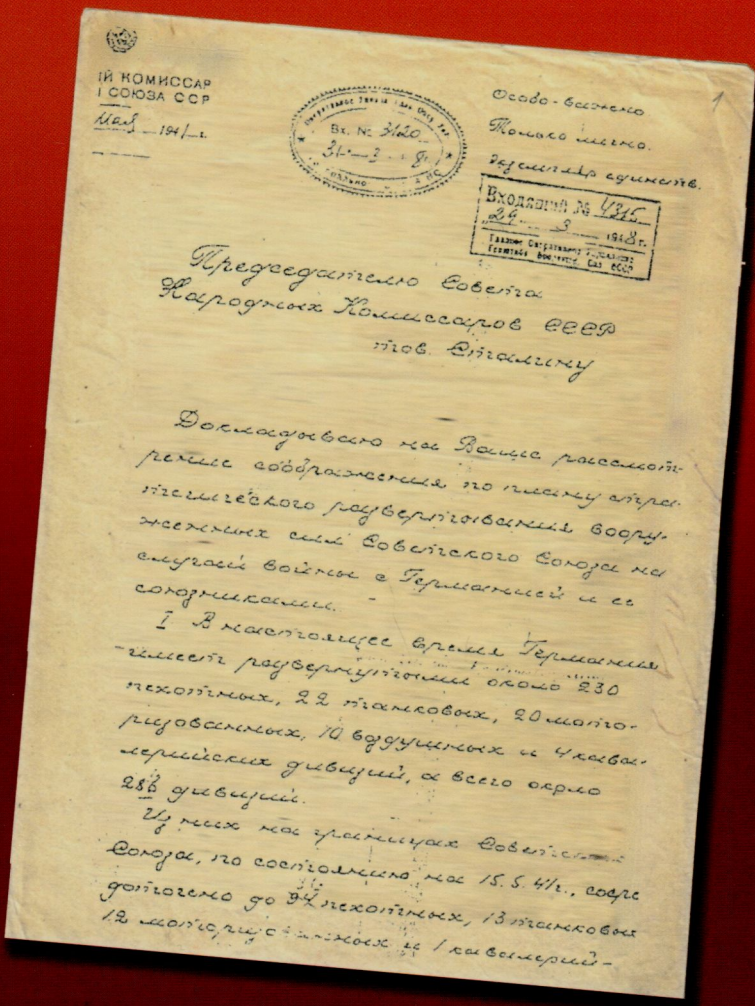 ІЙ КОМИССАР
І СОЮЗА ССР
Мая 1941 г.
Вх. № 3120
31 3 8
Особо-важно
Только лично.
Экземпляр единств.
1
Входящий № 4315
29 3 1948 г.
Председателю Совета
Народных Комиссаров СССР
тов. Сталину
Докладываю на Ваше рассмот-
рение соображения по плану стра-
тегического развертывания воору-
женных сил Советского Союза на
случай войны с Германией и ее
союзниками.
I В настоящее время Германия
имеет развернутыми около 230
пехотных, 22 танковых, 20 мото-
ризованных, 10 воздушных и 4 кава-
лерийских дивизий, а всего около
286 дивизий.
Из них на границах Советского
Союза, по состоянию на 15.5.41г., сосре
доточено до 94 пехотных, 13 танковых
12 моторизованных и 1 кавалерий-